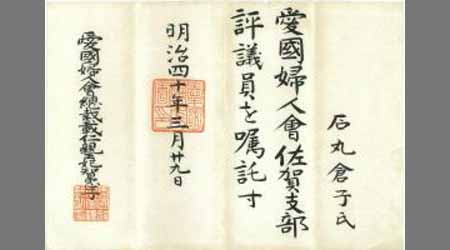 石丸倉子氏
愛國婦人會佐賀支部
評議員を嘱託す
明治四十年三月廿九日
愛國婦人會總裁載仁親王妃智惠子